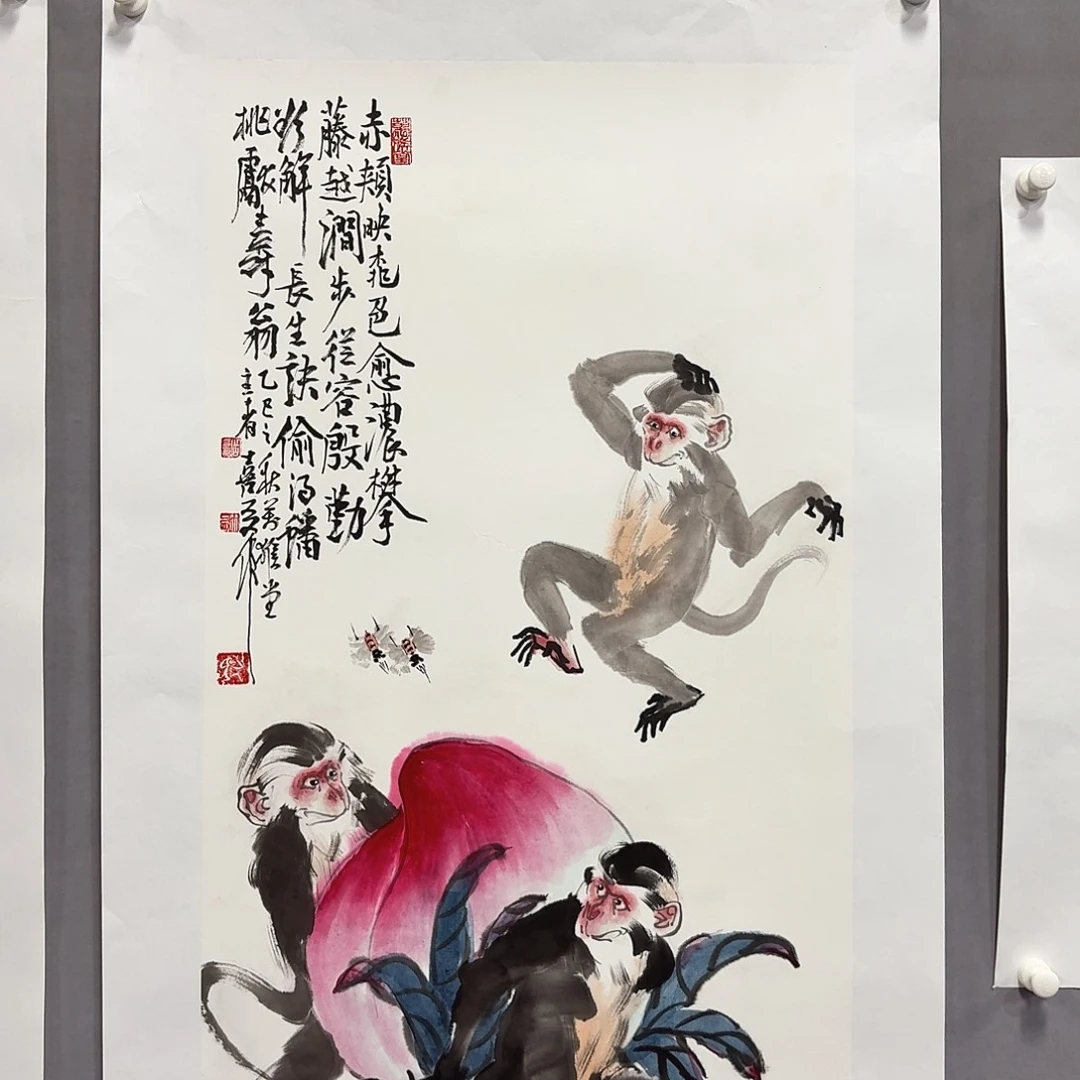 赤頰映桃色愈濃攀
藤越澗步從容殷勤
解長生訣偷得蟠
桃獻壽翁乙巳之秋萬堂
主者喜作